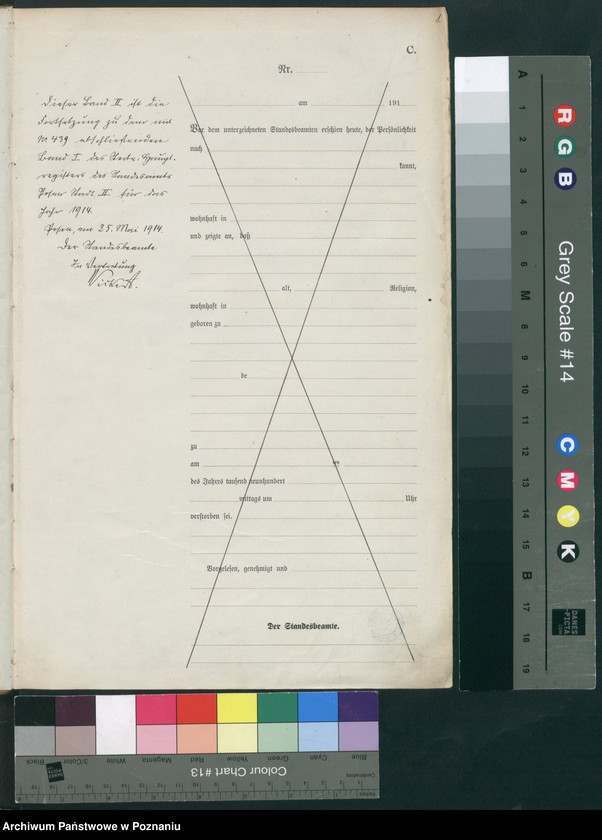 C.
Nr.
am 191
Vor dem unterzeichneten Standesbeamten erschien heute, der Persönlichkeit
nach
kannt,
wohnhaft in
und zeigte an, daß
alt, Religion,
wohnhaft in
geboren zu
de
zu
am
des Jahres tausend neunhundert
mittags um Uhr
verstorben sei.
Vorgelesen, genehmigt und
Der Standesbeamte.
Dieser Band II ist die
Fortsetzung zu dem mit
No 439 abschließenden
Band I des Sterbe-Haupt-
registers des Standesamts
Posen Stadt II für das
Jahr 1914.
Posen, am 25. Mai 1914.
Der Standesbeamte
In Vertretung
A 1 2 3 4 5 6 M 8 9 10 11 12 13 14 15 B 17 18 19
R G B
Grey Scale #14
C M Y K
DANES-PICTA
Blue Cyan Green Yellow Red Magenta White 3/Color Black
Colour Chart #13
Centimetres
Inches
Archiwum Państwowe w Poznaniu